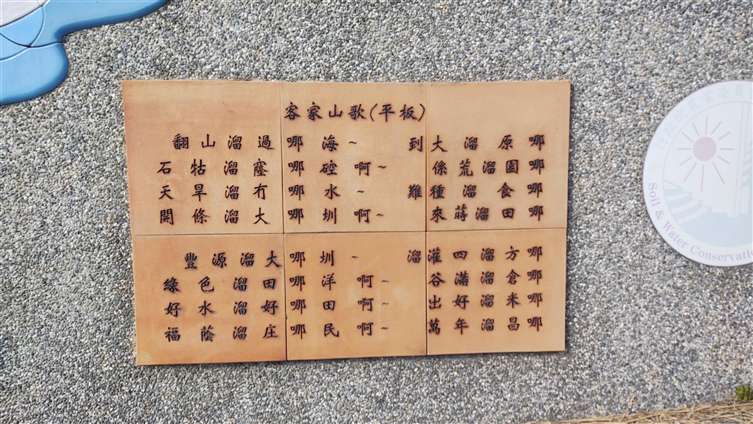 客家山歌(平板)
翻山溜過哪海~ 到大溜原哪
石牯溜窿哪硿啊~ 係荒溜園哪
天旱溜冇哪水~ 難種溜食哪
開條溜大哪圳啊~ 來蒔溜田哪
豐源溜大哪圳~ 溜灌四溜方哪
綠色溜田哪洋啊~ 谷滿溜倉哪
好水溜好哪田啊~ 出好溜米哪
福蔭溜庄哪民啊~ 萬年溜昌哪
Soil & Water Conservatio